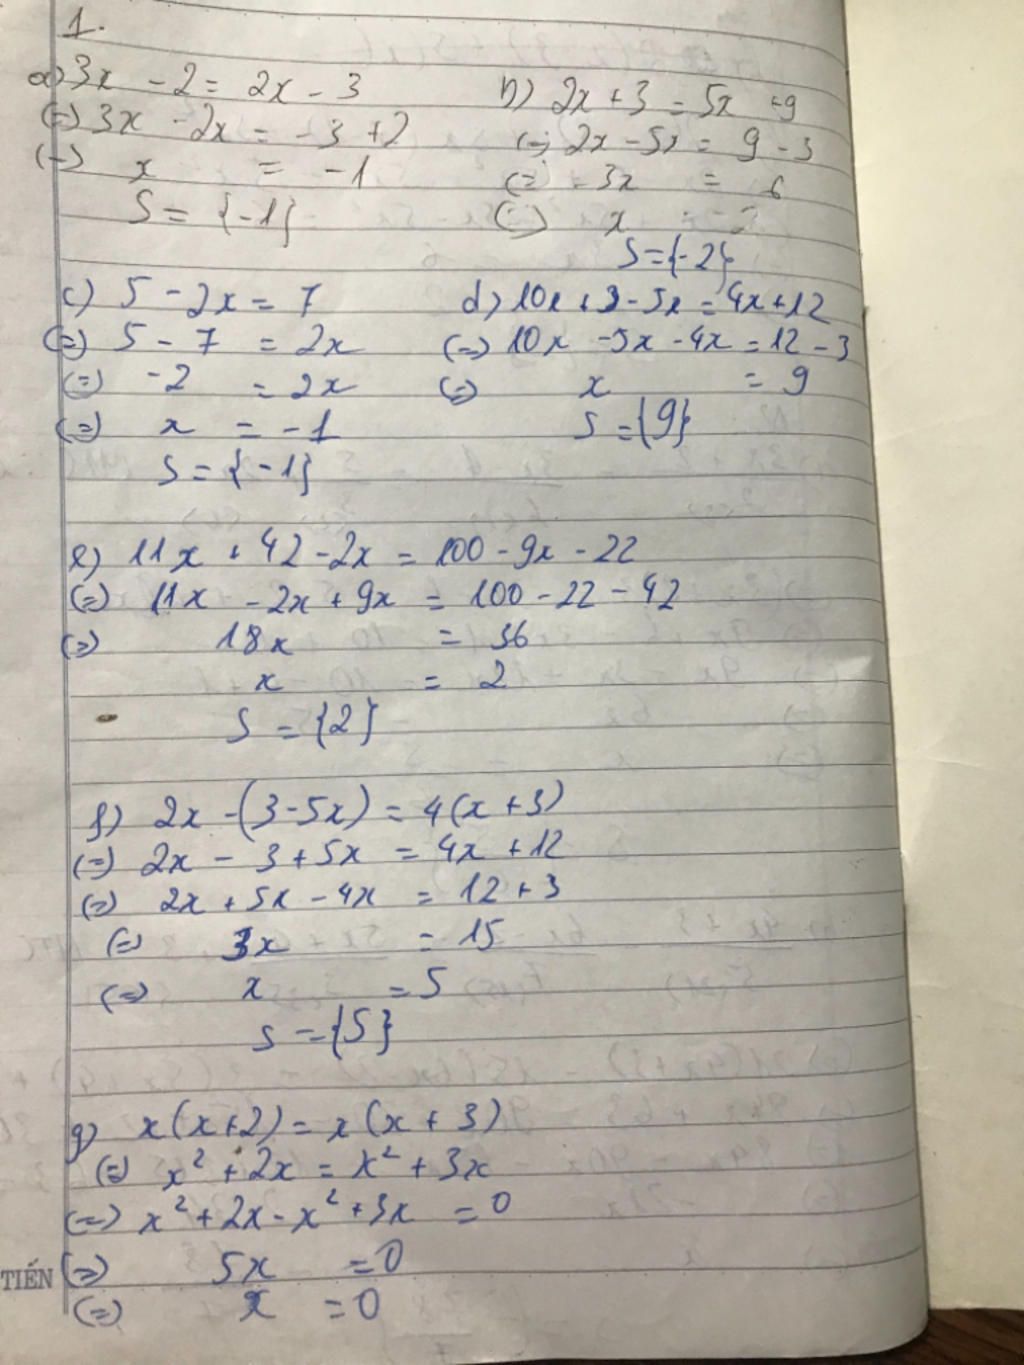 1.
a) 3x - 2 = 2x - 3
(=) 3x - 2x = -3 + 2
(=) x = -1
S = {-1}
b) 2x + 3 = 5x + 9
(=) 2x - 5x = 9 - 3
(=) -3x = 6
(=) x = -2
S = {-2}
c) 5 - 2x = 7
(=) 5 - 7 = 2x
(=) -2 = 2x
(=) x = -1
S = {-1}
d) 10x + 3 - 5x = 4x + 12
(=) 10x - 5x - 4x = 12 - 3
(=) x = 9
S = {9}
e) 11x + 42 - 2x = 100 - 9x - 22
(=) 11x - 2x + 9x = 100 - 22 - 42
(=) 18x = 36
x = 2
S = {2}
f) 2x - (3 - 5x) = 4(x + 3)
(=) 2x - 3 + 5x = 4x + 12
(=) 2x + 5x - 4x = 12 + 3
(=) 3x = 15
(=) x = 5
S = {5}
g) x(x + 2) = x(x + 3)
(=) x² + 2x = x² + 3x
(=) x² + 2x - x² + 3x = 0
(=) 5x = 0
(=) x = 0
TIẾN